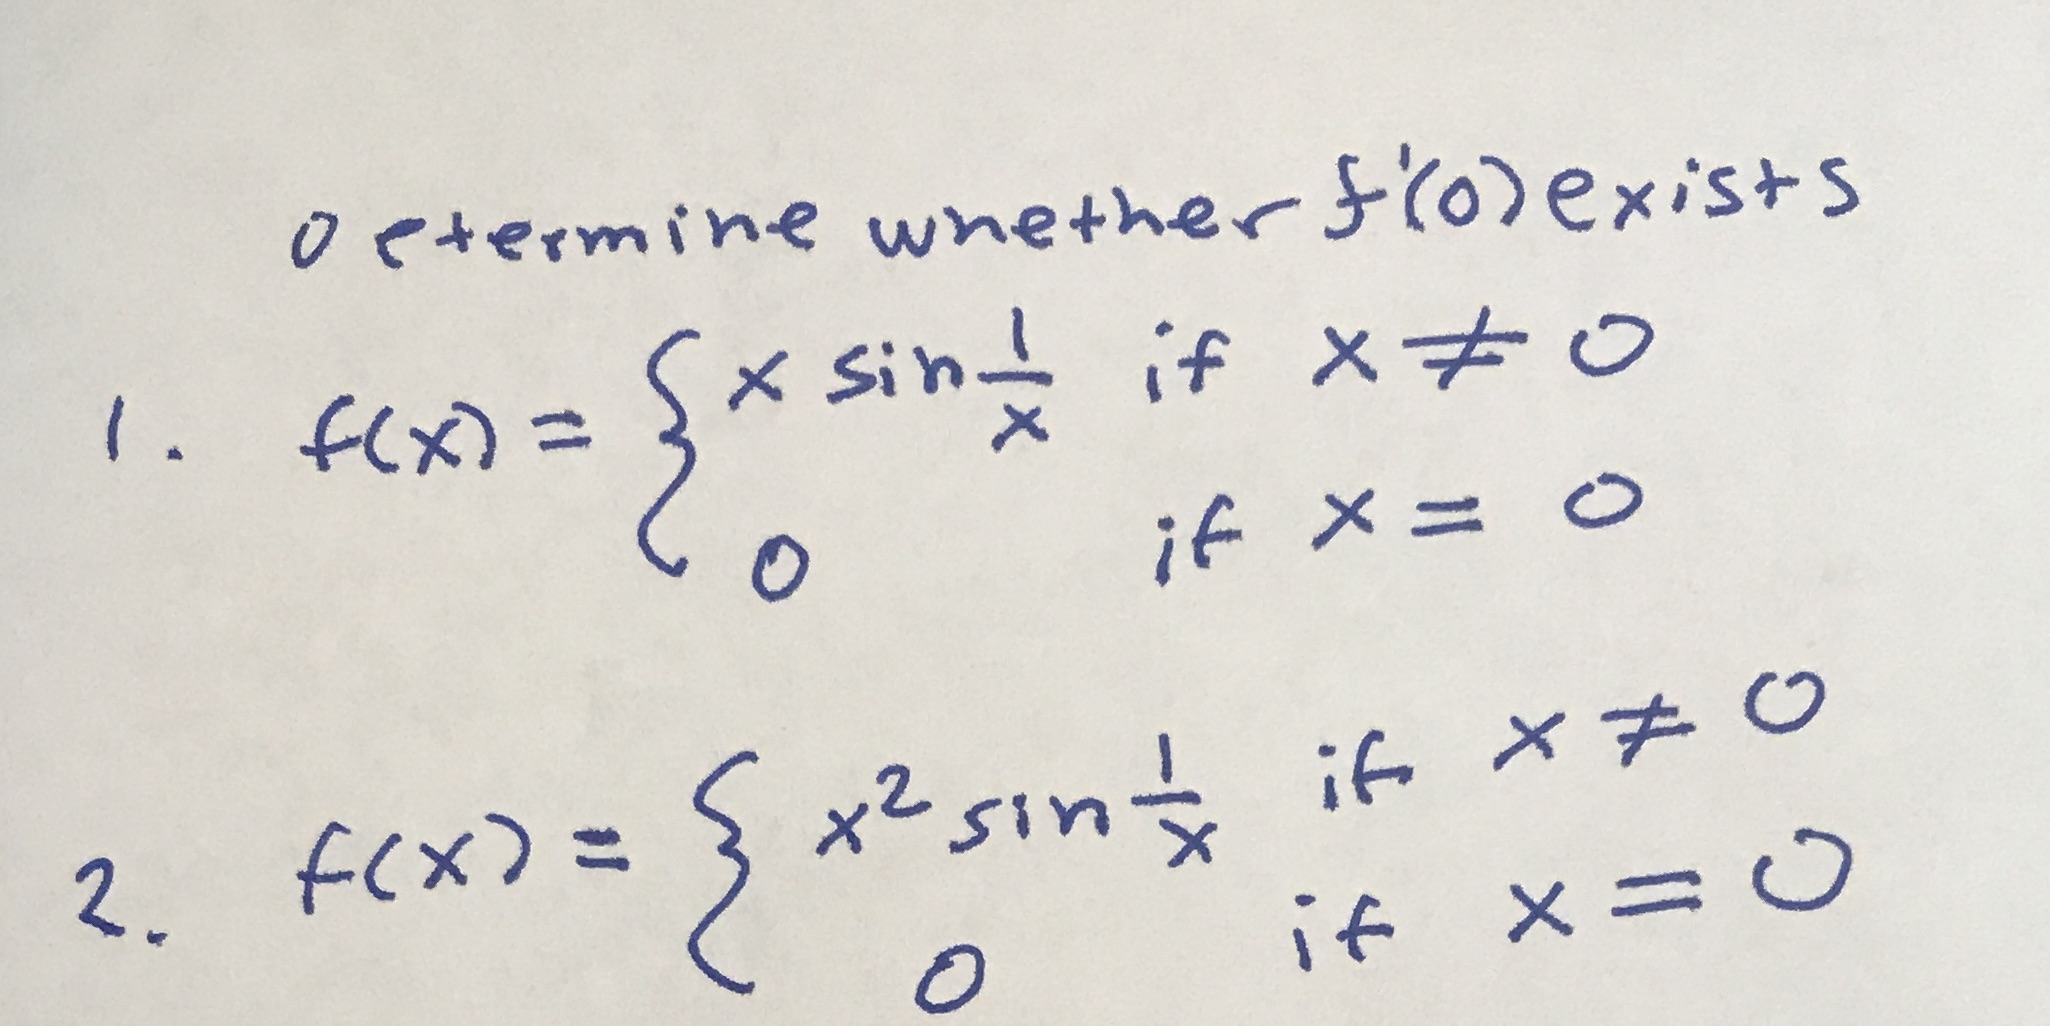 Determine whether f'(0) exists
1. f(x) = { x sin 1/x if x ≠ 0
0 if x = 0
2. f(x) = { x² sin 1/x if x ≠ 0
0 if x = 0